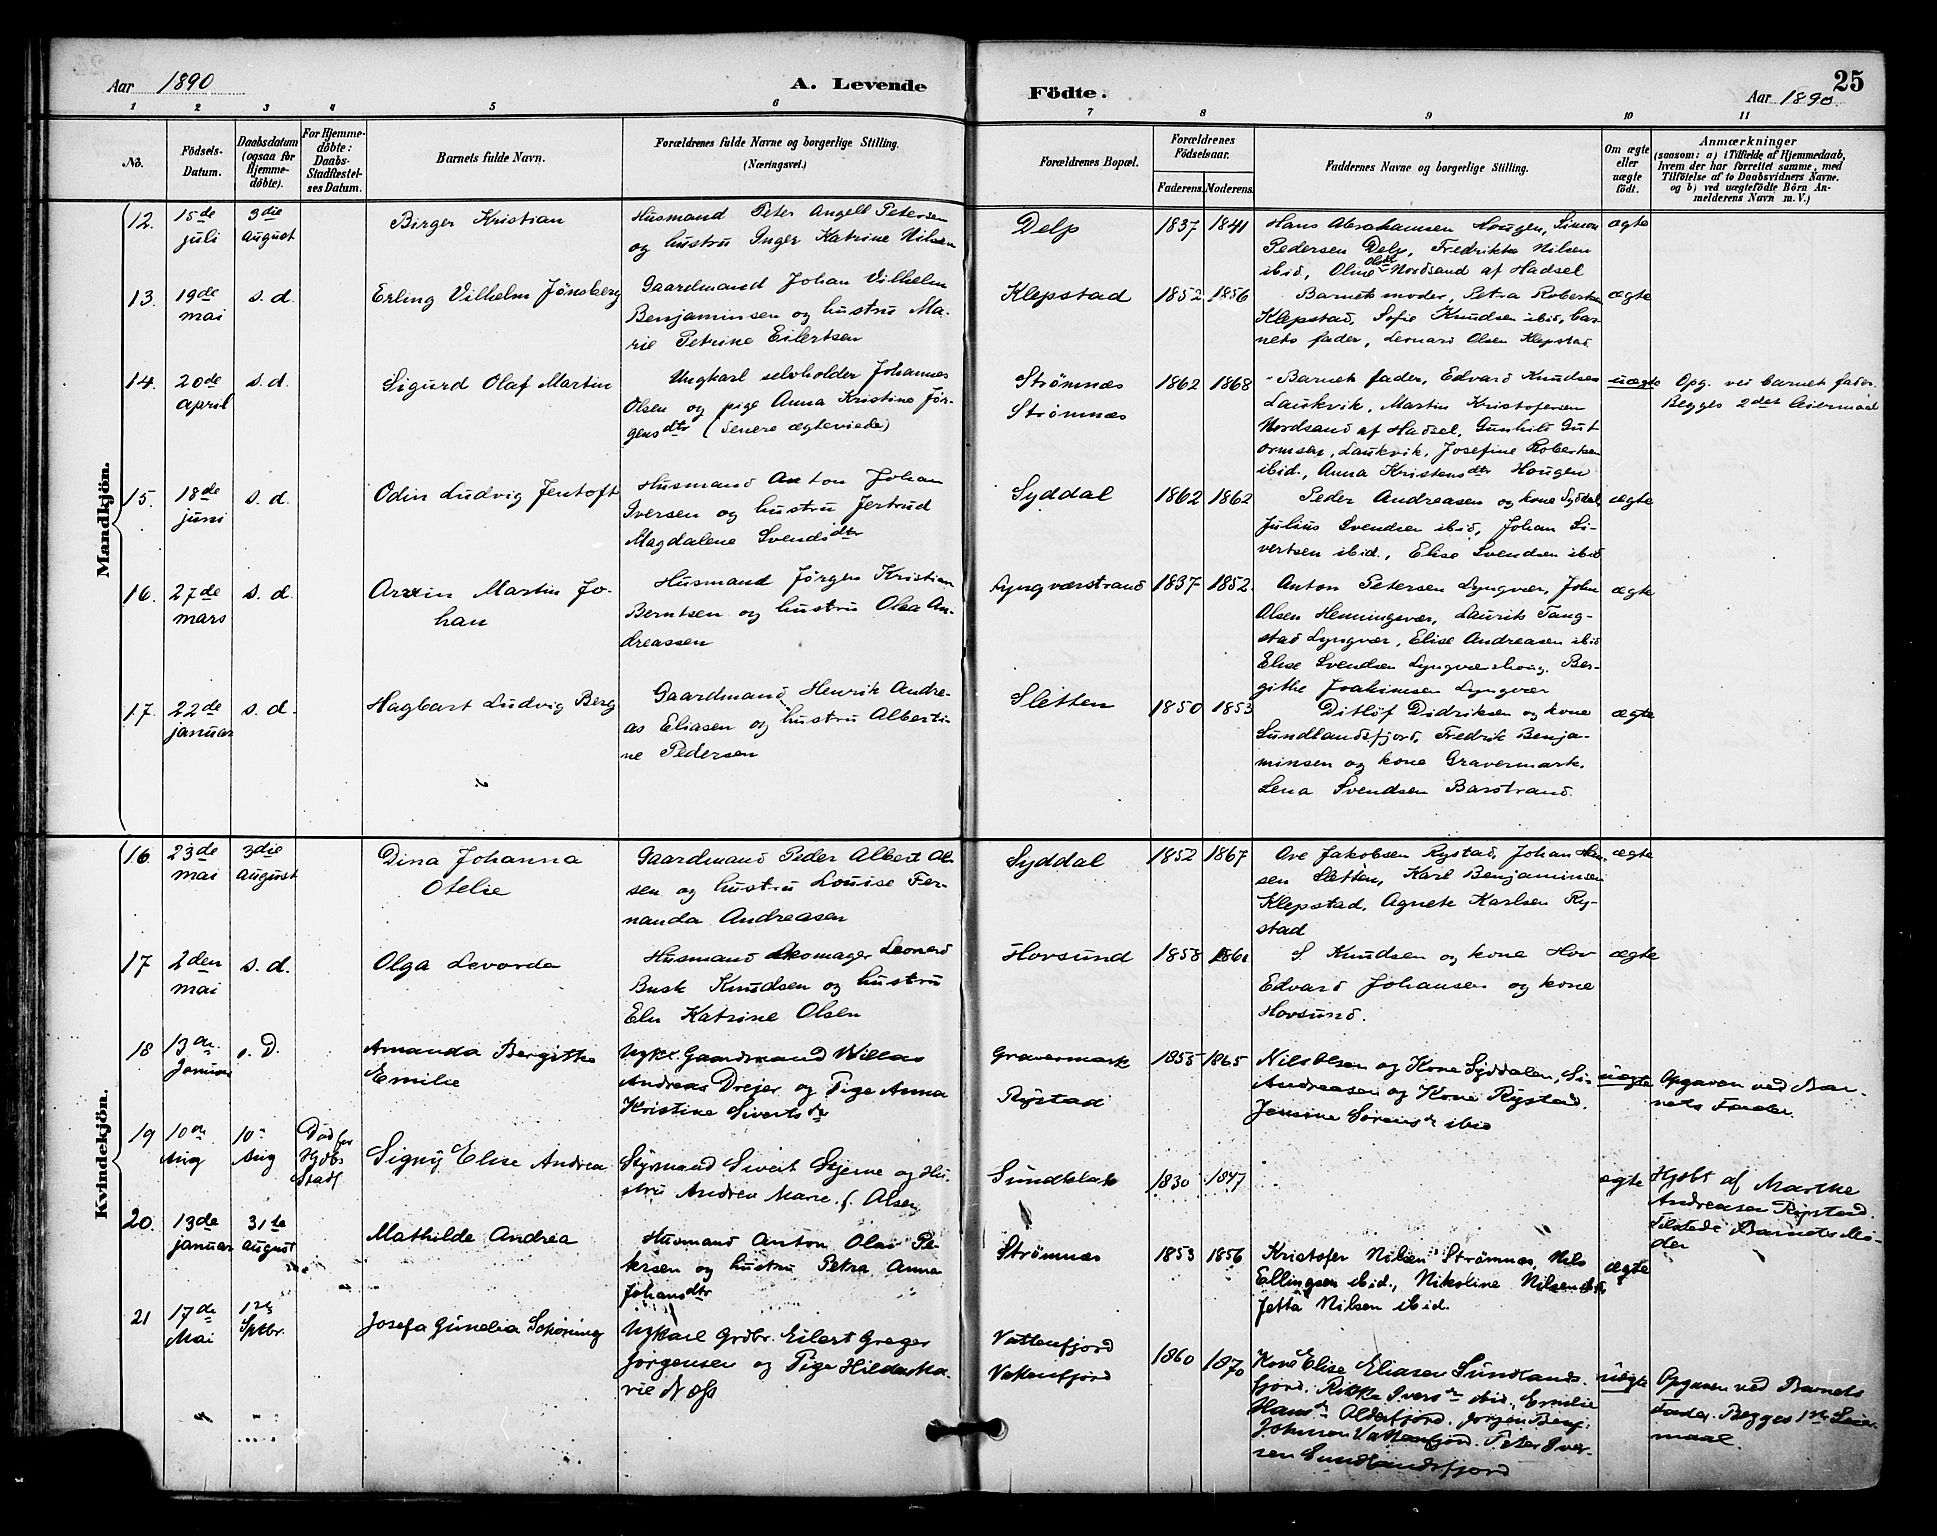 Aar 1890
A. Levende Födte.
25
Aar 1890
1 2 3 4 5 6 7 8 9 10 11
No.
Födsels-Datum.
Daabsdatum (ogsaa for Hjemme-döbte).
For Hjemme-döbte: Daabs-Stadfæstelses Datum.
Barnets fulde Navn.
Forældrenes fulde Navne og borgerlige Stilling.
(Næringsvei.)
Forældrenes Bopæl.
Forældrenes Födselsaar.
Faderens. Moderens.
Faddernes Navne og borgerlige Stilling.
Om ægte eller uægte födt.
Anmærkninger
(saasom: a) i Tilfælde af Hjemmedaab, hvem der har forrettet samme, med Tilföielse af to Daabsvidners Navne. og b) ved uægtefödte Börn Anmelderens Navn m. V.)
Mandkjön.
12. 15de juli 3die August
Birger Kristian
Husmand Peter Angell Petersen
og hustru Inger Katrine Nilsen
Delp 1837 1841
Hans Abrahamsen Hougen, Simon
Pedersen Delp, Fredrikke Nilsen
ibid, Oline Nordsand af Hadsel
ægte
13. 19de mai s. d.
Erling Vilhelm Jönsberg
Gaardmand Johan Vilhelm
Benjaminsen og hustru Ma-
rie Petrine Eilertsen
Klepstad 1852 1856
Barnets moder, Petra Robertsen
Klepstad, Sofie Knudsen ibid, bar-
nets fader, Leonard Olsen Klepstad
ægte
14. 20de april s. d.
Sigurd Olaf Martin
Ungkarl selvholder Johannes
Olsen og pige Anna Kristine Jör-
gensdtr (senere ægteviede)
Strømnæs
Strømnæs
1862 1868
Barnets fader, Edvard Knudsen
Laukvik, Martin Kristofersen
Nordsand af Hadsel, Gunhild Gut
ormsen, Laukvik, Josefine Robertsen
ibid., Anna Kristensdtr Hougen
uægte
Opg. ved barnets fader.
Begges 2det leiermaal
15. 18de juni s. d.
Odin Ludvig Jentoft
Husmand Anton Johan
Iversen og hustru Jertrud
Magdalene Svendsdtr
Syddal 1862 1862
Peder Andreasen og kone Syddal,
Julius Svendsen ibid, Johan Si-
vertsen ibid., Elise Svendsen ibid
ægte
16. 27de mars s. d.
Martin Jo-
han
Husmand Jörgen Kristian
Berntsen og hustru Olea An-
dreassen
Lyngværstrand 1837 1852.
Anton Petersen Lyngvær, John
Olsen Henningsvær, Laurits Tang-
stad Lyngvær, Elise Andreasen ibid
Elise Svendsen Lyngvær, Ber-
githe Joakimsen Lyngvær
ægte
17. 22de januar s. d.
Hagbart Ludvig Berg
Gaardmand Henrik Andre-
as Eliasen og hustru Alberti-
ne Pedersen
Sletten 1850 1853
Ditlöf Didriksen og kone
Sundlandsfjord, Fredrik Benja-
minsen og kone Gravermark,
Lena Svendsen Barstrand.
ægte
Kvindekjön.
16 23de mai 3die August
Dina Johanna
Otelie
Gaardmand Peder Albert Ol-
sen og hustru Louise Fer-
nanda Andreasen
Syddal 1852 1867
Ove Jakobsen Rystad, Johan Han-
sen Sletten, Karl Benjaminsen
Klepstad, Agnete Karlsen Ry-
stad
ægte
17 2den mai s. d.
Olga Levorda
Husmand skomager Leonard
Busk Knudsen og hustru
Elen Katrine Olsen
Hovsund 1858
S Knudsen og kone Hov
Edvard Johansen og kone
Hovsund.
ægte
18 13de Januar s. D.
Amanda Bergitthe
Emilie
Ugkl. Gaardmand Willas
Andreas Drejer og Pige Anna
Kristine Sivertsdr
Gravermark
Rystad
1855 1865
Nils Olsen og Kone Syddalen, Si-
Andreasen og Kone Rystad.
Jensine Sörensdr ibid
uægte
Opgaven ved Bar-
nets Fader.
19 10de Aug 10de Aug
Signy Elise Andrea
Styrmand Sivert Stjerne og Hu-
stru Andrea Marie f. Olsen
Sundklak 1830 1847
ægte
Hjdbt af Marthe
Andreasen Rystad.
Tilstede Barnets Mo-
der
20. 13de januar 31te August
Mathilde Andrea
Husmand Anton Olai Pe-
tersen og hustru Petra Anna
Johansdtr
Strømnæs 1853 1856
Kristofer Nilsen Strømnæs, Nils
Ellingsen ibid., Nikoline Nilsen ibid,
Jetta Nilsen ibid.
ægte
21 17de Mai Sptbr.
Josefa Gunelia Schöning
Ugkarl Grdbr. Eilert Greger
Jörgensen og Pige Hilda Ma-
rie Næss
Vattenfjord
Vattenfjord
1860 1870
Kone Elise Eliasen Sundlands-
fjord. Rikka Iversdr ibid, Emelie
Hansdr Olderfjord. Jörgen Benj.
Johnsen Vattenfjord. Peter Iver-
sen Sundlandsfjord
uægte
Opgaven ved Barnets
Fader. Begges 1ste Leier-
maal.